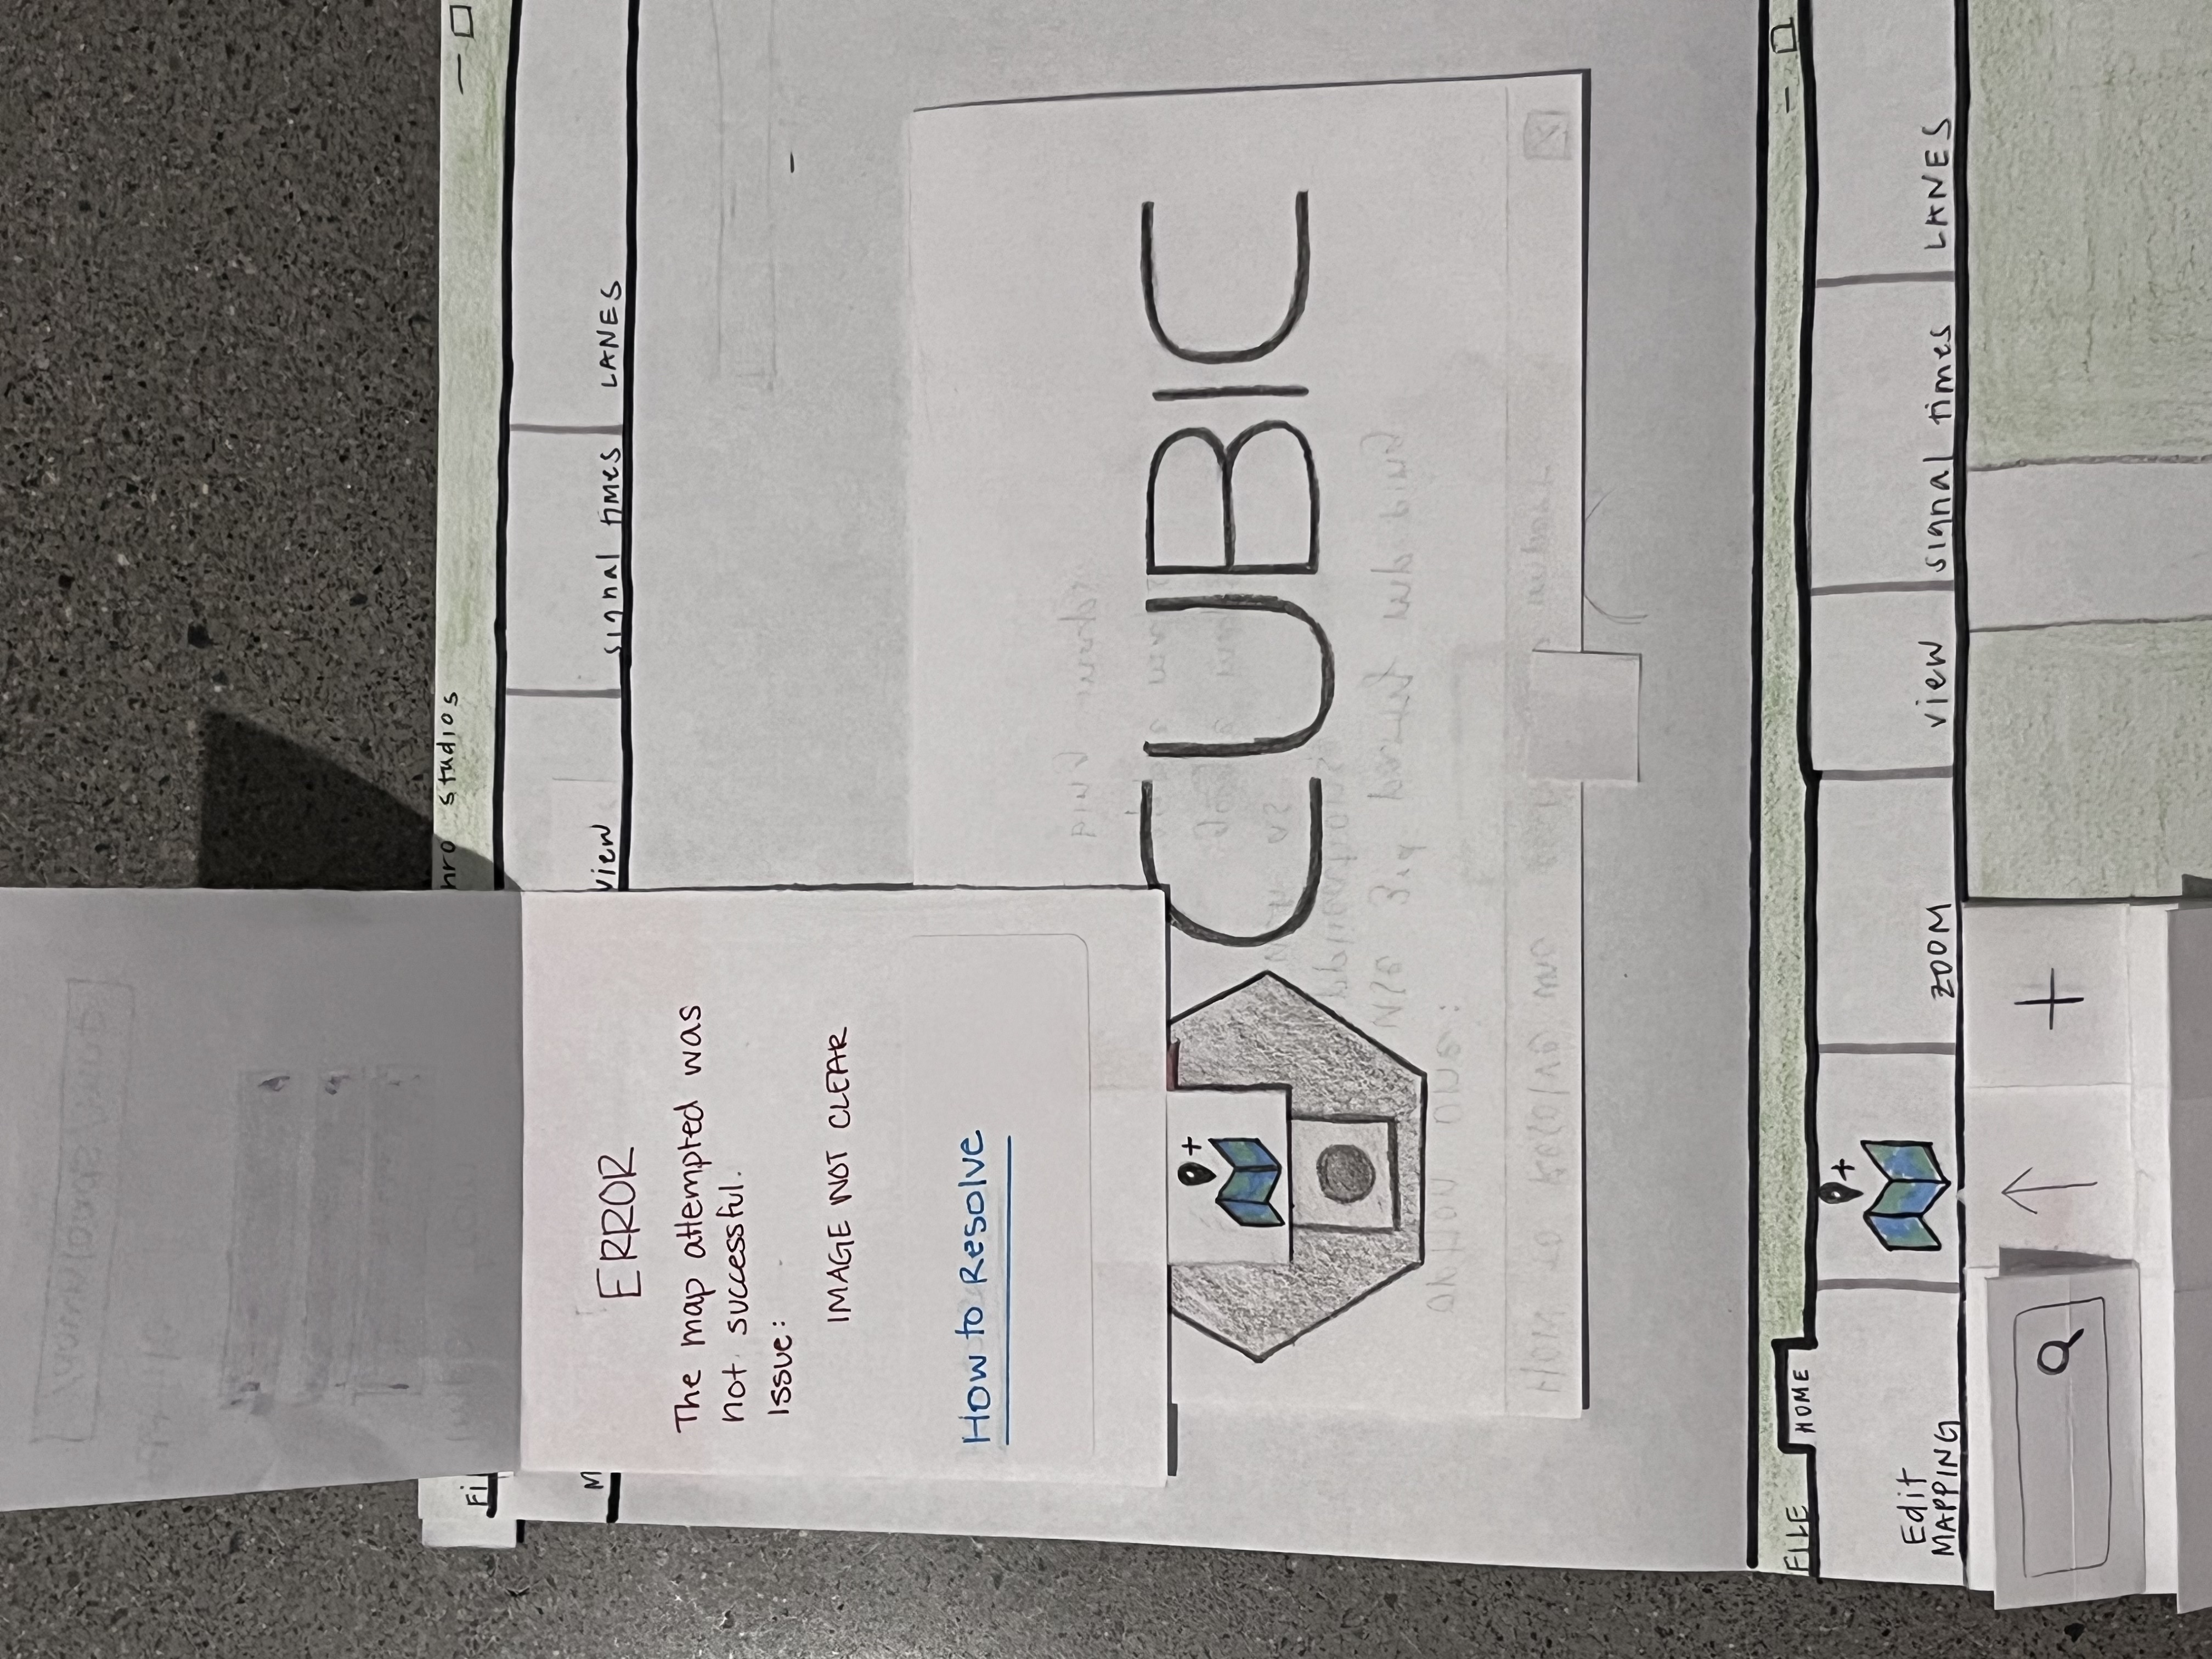 Fi
hro studios
M
view
signal times
LANES
ERROR
The map attempted was
not successful.
Issue:
IMAGE NOT CLEAR
How to Resolve
+
CUBIC
FILE
HOME
+
Edit
MAPPING
ZOOM
view
signal times
LANES
+